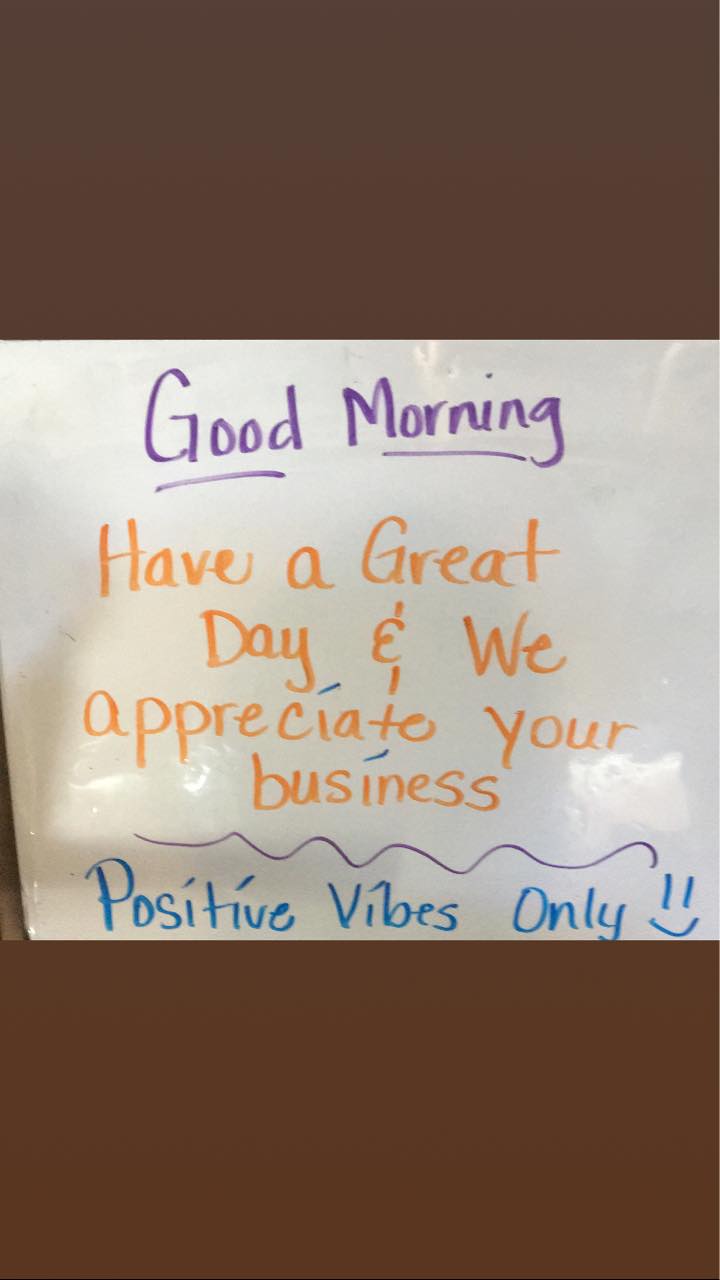 Good Morning
Have a Great
Day & We
appreciate your
business
Positive Vibes Only !!